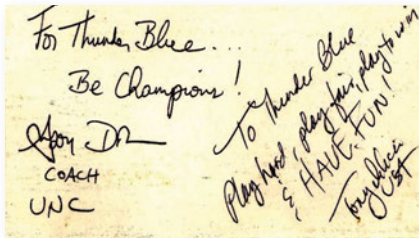 For Thunder Blue....
Be Champions!
COACH
UNC
To Thunder Blue
Play hard, play fair, play to win
& HAVE FUN!